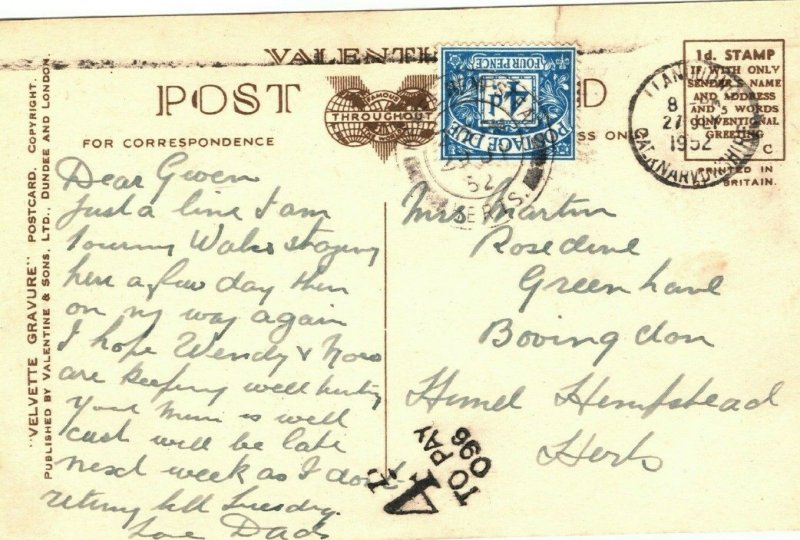 VALENTI
POST
RD
FOR CORRESPONDENCE
FAMOUS
THROUGHOUT
ESS ONLY
"VELVETTE GRAVURE" POSTCARD. COPYRIGHT.
PUBLISHED BY VALENTINE & SONS, LTD., DUNDEE AND LONDON.
POSTAGE DUE
4
D
FOUR PENCE
52
HERTS.
27 SEP
1952
CAERNARVONSHIRE
1d. STAMP
IF WITH ONLY
SENDER'S NAME
AND ADDRESS
AND 5 WORDS
CONVENTIONAL
GREETING
C
PRINTED IN
BRITAIN.
Dear Gwen
Just a line I am
touring Wales staying
here a few day then
on my way again
I hope Wendy &
are keeping well
your Mum is well
will be late
next week as I dont
return till Tuesday.
Love Dad
Mrs Martin
Rosedene
Green Lane
Bovingdon
Hemel Hempstead
Herts
4D
TO PAY
096